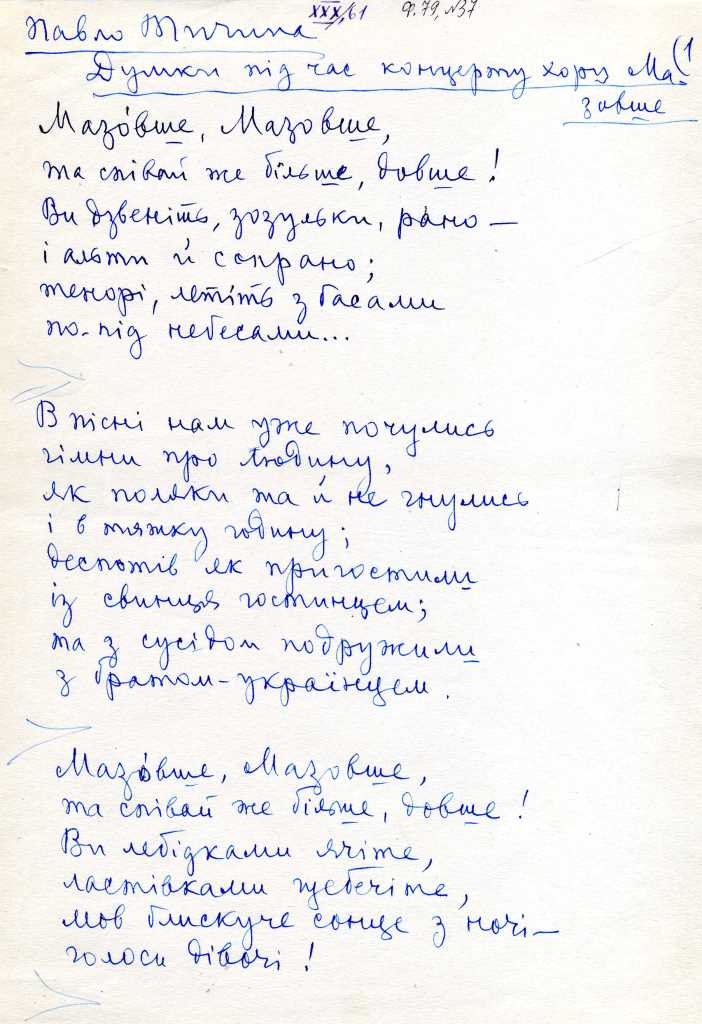 XXX/61 Ф.79, №37
Павло Тичина
(1
Думки під час концерту хору Ма-
зовше
Мазо́вше, Мазовше,
та співай же більше, довше!
Ви дзвеніть, зозульки, рано —
і альти й сопрано;
тенорі, летіть з басами
по-під небесами...
В пісні нам уже почулись
гімни про людину,
як поляки та й не гнулись
і в тяжку годину;
деспотів як пригостили
із свинця гостинцем;
та з сусідом подружили
з братом-українцем.
Мазо́вше, Мазовше,
та співай же більше, довше!
Ви лебідками ячіте,
ластівками щебечіте,
мов блискуче сонце з ночі—
голоси дівочі!